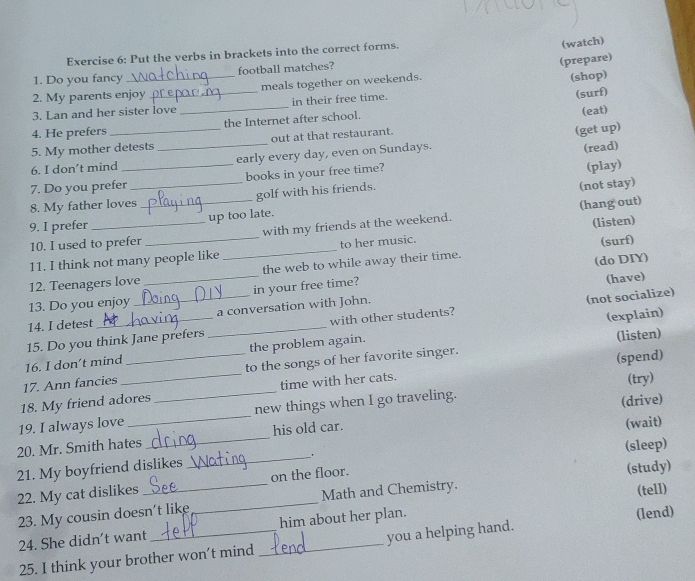 Exercise 6: Put the verbs in brackets into the correct forms.
1. Do you fancy watching football matches? (watch)
2. My parents enjoy preparing meals together on weekends. (prepare)
3. Lan and her sister love ____ in their free time. (shop)
4. He prefers ____ the Internet after school. (surf)
5. My mother detests ____ out at that restaurant. (eat)
6. I don't mind ____ early every day, even on Sundays. (get up)
7. Do you prefer ____ books in your free time? (read)
8. My father loves playing golf with his friends. (play)
9. I prefer ____ up too late. (not stay)
10. I used to prefer ____ with my friends at the weekend. (hang out)
11. I think not many people like ____ to her music. (listen)
12. Teenagers love ____ the web to while away their time. (surf)
13. Do you enjoy Doing DIY in your free time? (do DIY)
14. I detest having a conversation with John. (have)
15. Do you think Jane prefers ____ with other students? (not socialize)
16. I don't mind ____ the problem again. (explain)
17. Ann fancies ____ to the songs of her favorite singer. (listen)
18. My friend adores ____ time with her cats. (spend)
19. I always love ____ new things when I go traveling. (try)
20. Mr. Smith hates dring his old car. (drive)
21. My boyfriend dislikes Wating. (wait)
22. My cat dislikes See on the floor. (sleep)
23. My cousin doesn't like ____ Math and Chemistry. (study)
24. She didn't want tell him about her plan. (tell)
25. I think your brother won't mind lend you a helping hand. (lend)